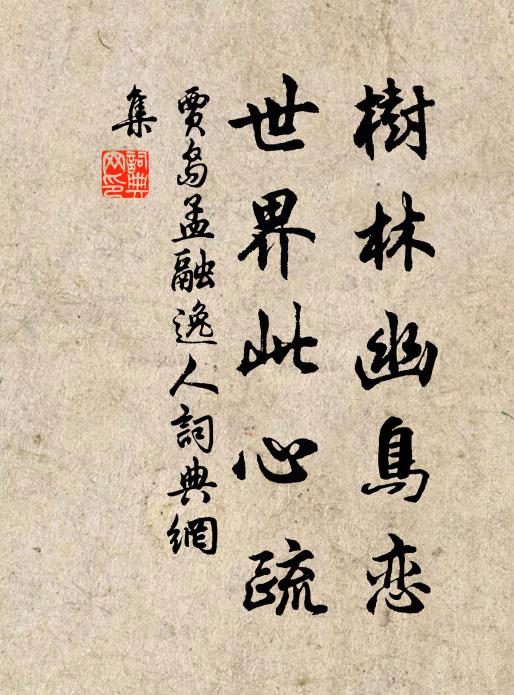 樹林幽鳥恋
世界此心疏
賈島孟融逸人詞典網
集
詞典
网印